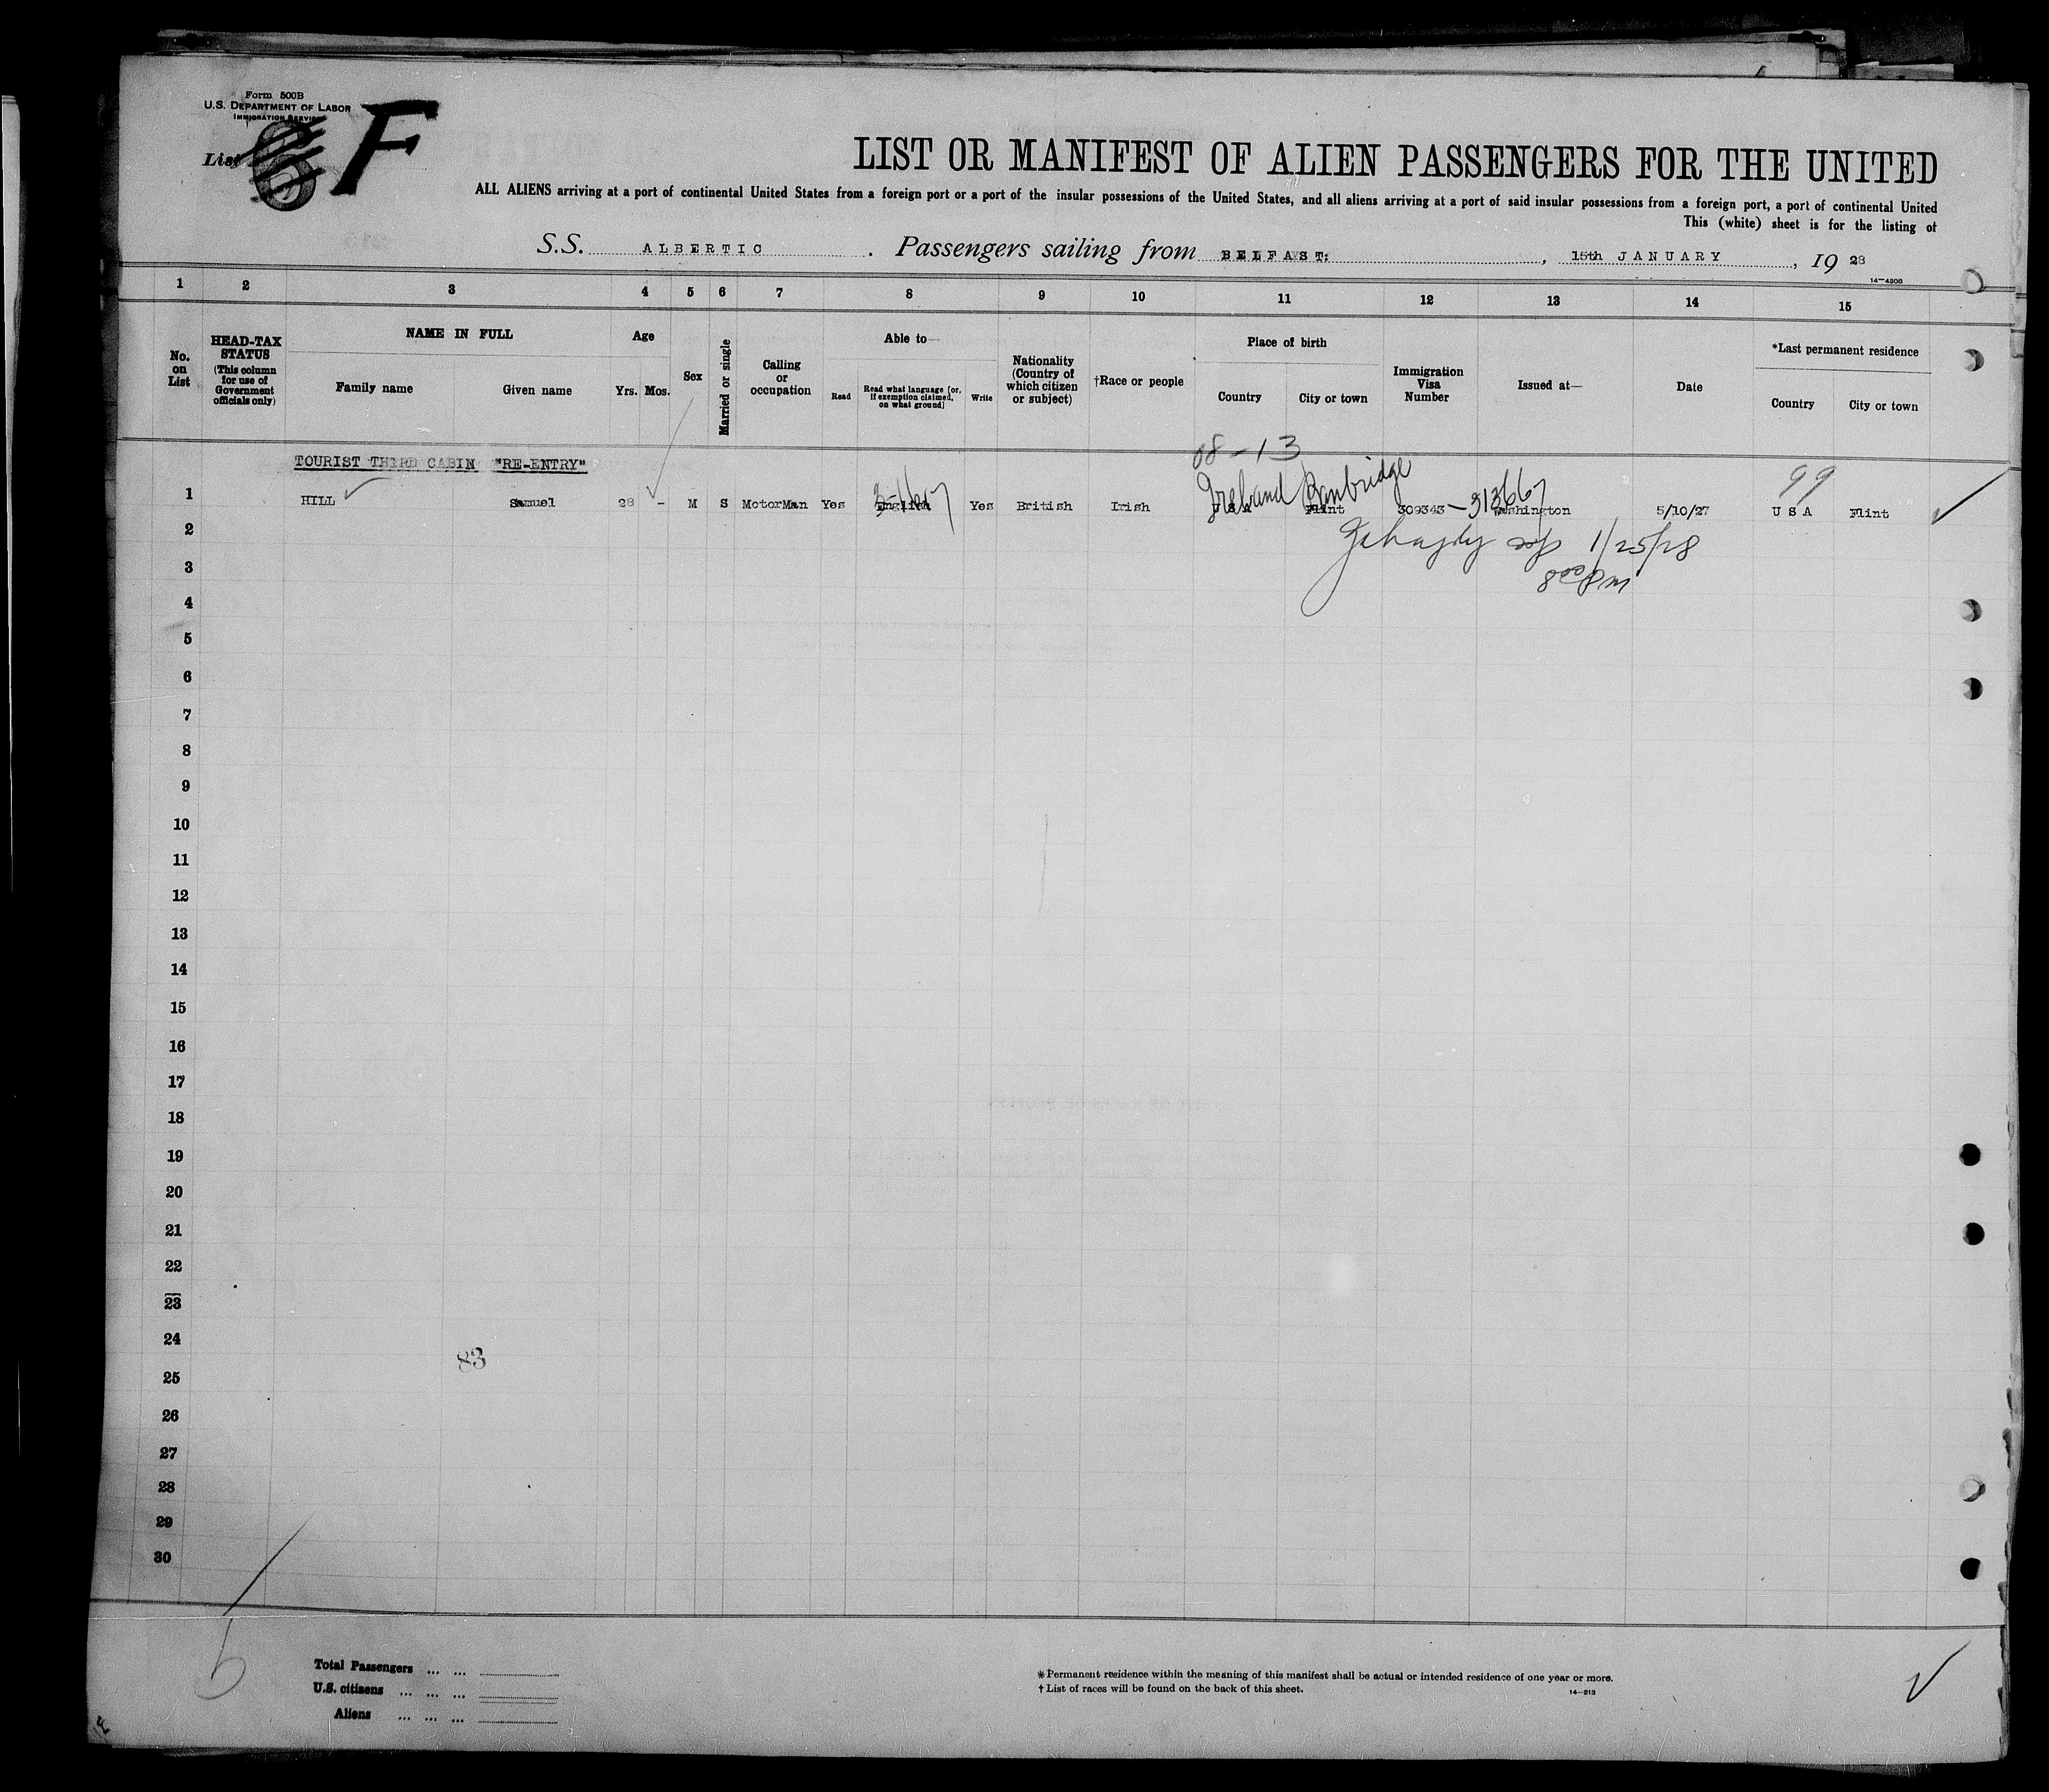 Form 500B
U.S. DEPARTMENT OF LABOR
IMMIGRATION SERVICE
List F
LIST OR MANIFEST OF ALIEN PASSENGERS FOR THE UNITED
ALL ALIENS arriving at a port of continental United States from a foreign port or a port of the insular possessions of the United States, and all aliens arriving at a port of said insular possessions from a foreign port, a port of continental United
This (white) sheet is for the listing of
S.S. ALBERTIC . Passengers sailing from BELFAST: , 15th JANUARY , 19 28
14—430B
1 2 3 4 5 6 7 8 9 10 11 12 13 14 15
No. on List
HEAD-TAX STATUS (This column for use of Government officials only)
NAME IN FULL
Family name Given name
Age
Yrs. Mos.
Sex
Married or single
Calling or occupation
Able to—
Read Read what language [or, if exemption claimed, on what ground] Write
Nationality (Country of which citizen or subject)
†Race or people
Place of birth
Country City or town
Immigration Visa Number
Issued at—
Date
*Last permanent residence
Country City or town
08-13
TOURIST THIRD CABIN "RE-ENTRY"
99
Ireland Banbridge
1 HILL Samuel 28 - M S MotorMan Yes English Yes British Irish U S A Flint 309343 -313667 Washington 5/10/27 U S A Flint
2
1/25/28
3
4
5
6
7
8
9
10
11
12
13
14
15
16
17
18
19
20
21
22
23
24
83
25
26
27
28
29
30
Total Passengers ... ...
U.S. citizens ... ... ...
Aliens ... ... ...
*Permanent residence within the meaning of this manifest shall be actual or intended residence of one year or more.
†List of races will be found on the back of this sheet.
14—213